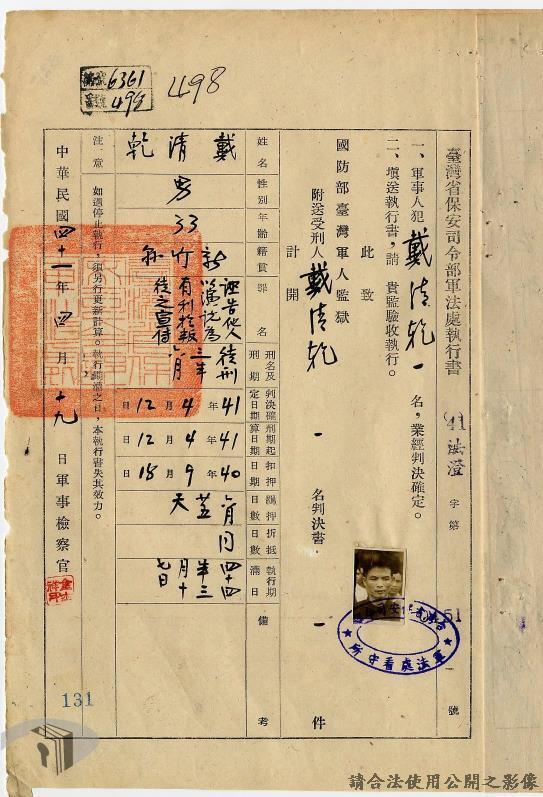 6361
498
498
臺灣省保安司令部軍法處執行書
41法澄字第51號
一、軍事人犯戴清乾一名,業經判決確定。
二、填送執行書,請 貴監驗收執行。
此致
國防部臺灣軍人監獄
附送受刑人戴清乾一名判決書一件
計開
姓名 性別 年齡 籍貫 罪名 刑名及刑期 判決確定日期 刑期起算日期 扣押日期 羈押日數 折抵日數 執行期滿日 備考
戴清乾
男
33
新竹
誣告他人
為
有利於叛徒之宣傳
徒刑三年六月
41年4月12日
41年4月12日
40年9月18日
六月
天
四十四年三月十七日
注意 如遇停止執行,須另行更新計算。執行期滿之日,本執行書失其效力。
中華民國四十一年四月十九日軍事檢察官
軍法處看守所
131
請合法使用公開之影像